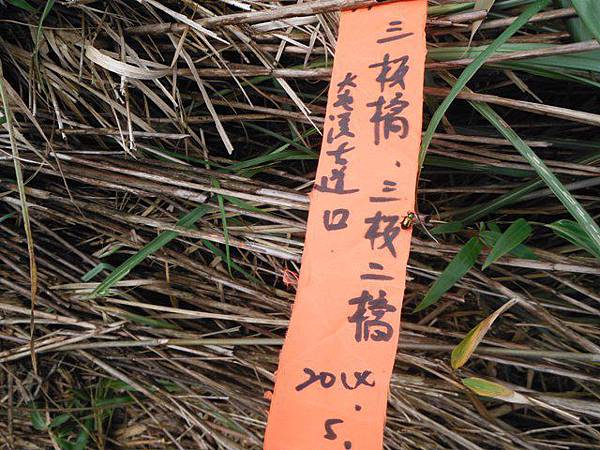 三板橋、三板二橋
大屯溪古道口
2014.
5.